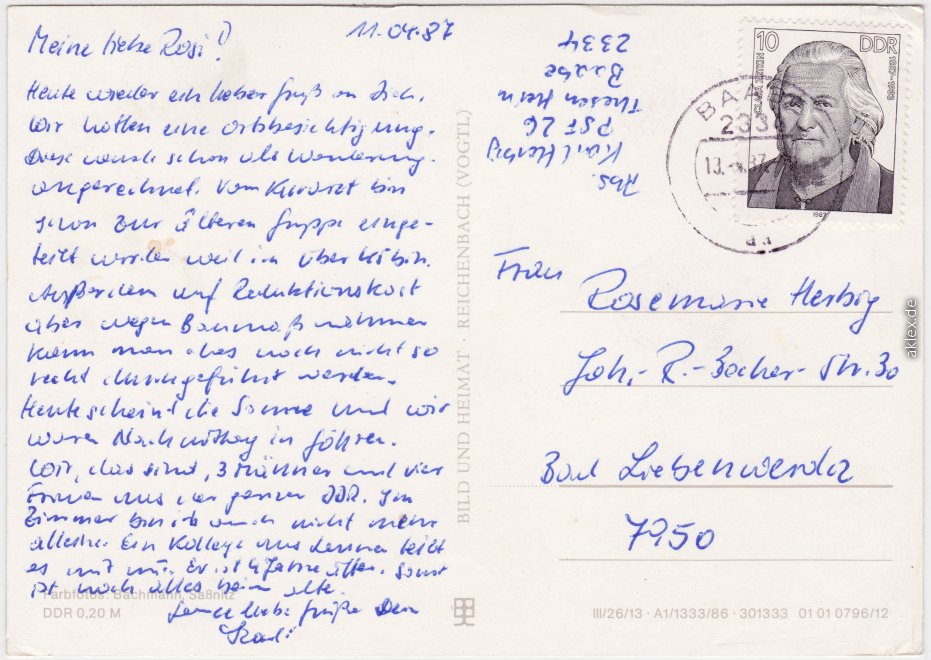 11.04.87
Meine liebe Rosi!
Heute wieder ein lieber Gruß an Dich.
Wir hatten eine Ortsbesichtigung.
Diese wurde schon als Wanderung
angerechnet. Vom Kurarzt bin
schon zur Älteren Gruppe einge-
teilt worden weil ich über 40 bin.
Außerdem auf Reduktionskost
aber wegen Baumaßnahmen
kann man dies noch nicht so
recht durchgeführt werden.
Heute scheint die Sonne und wir
waren Nachmittag in Göhren.
Wir, das sind, 3 Männer und vier
Frauen aus der ganzen DDR. Im
Zimmer bin ich auch nicht mehr
alleine. Ein Kollege aus teilt
es mit mir. Er ist 4 Jahre älter. Sonst
ist noch alles beim alte.
liebe Grüße Dein
Karli
Farbfotos: Bachmann, Saßnitz
DDR 0,20 M
BILD UND HEIMAT · REICHENBACH (VOGTL)
Abs.
Karl Herbig
PSF 26
Thesen Hein
Baabe
2334
10 DDR
CLARA ZETKIN
1857-1933
1987
BAABE
2334
13.-4.87
Frau
Rosemarie Herbig
Joh.-R.-Becher-Str. 30
Bad Liebenwerda
7950
III/26/13 · A1/1333/86 · 301333 01 01 0796/12
aklex.de